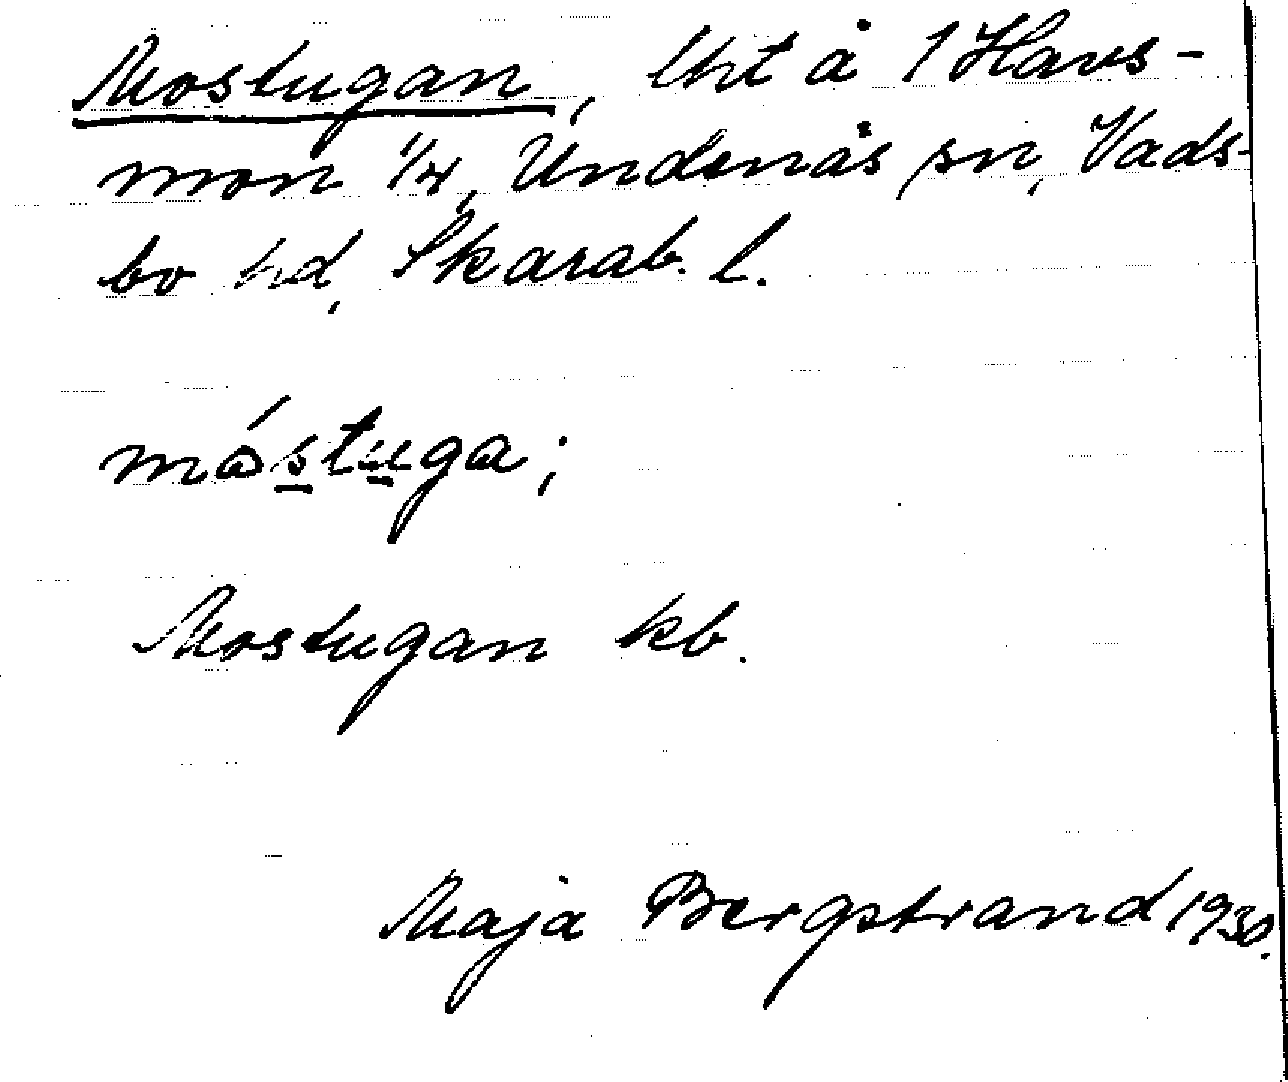 Mostugan, lht å 1 Havs-
mon 1/4, Undenäs sn, Vads-
bo hd, Skarab. l.
móstuga;
Mostugan kb.
Maja Bergstrand 1930.